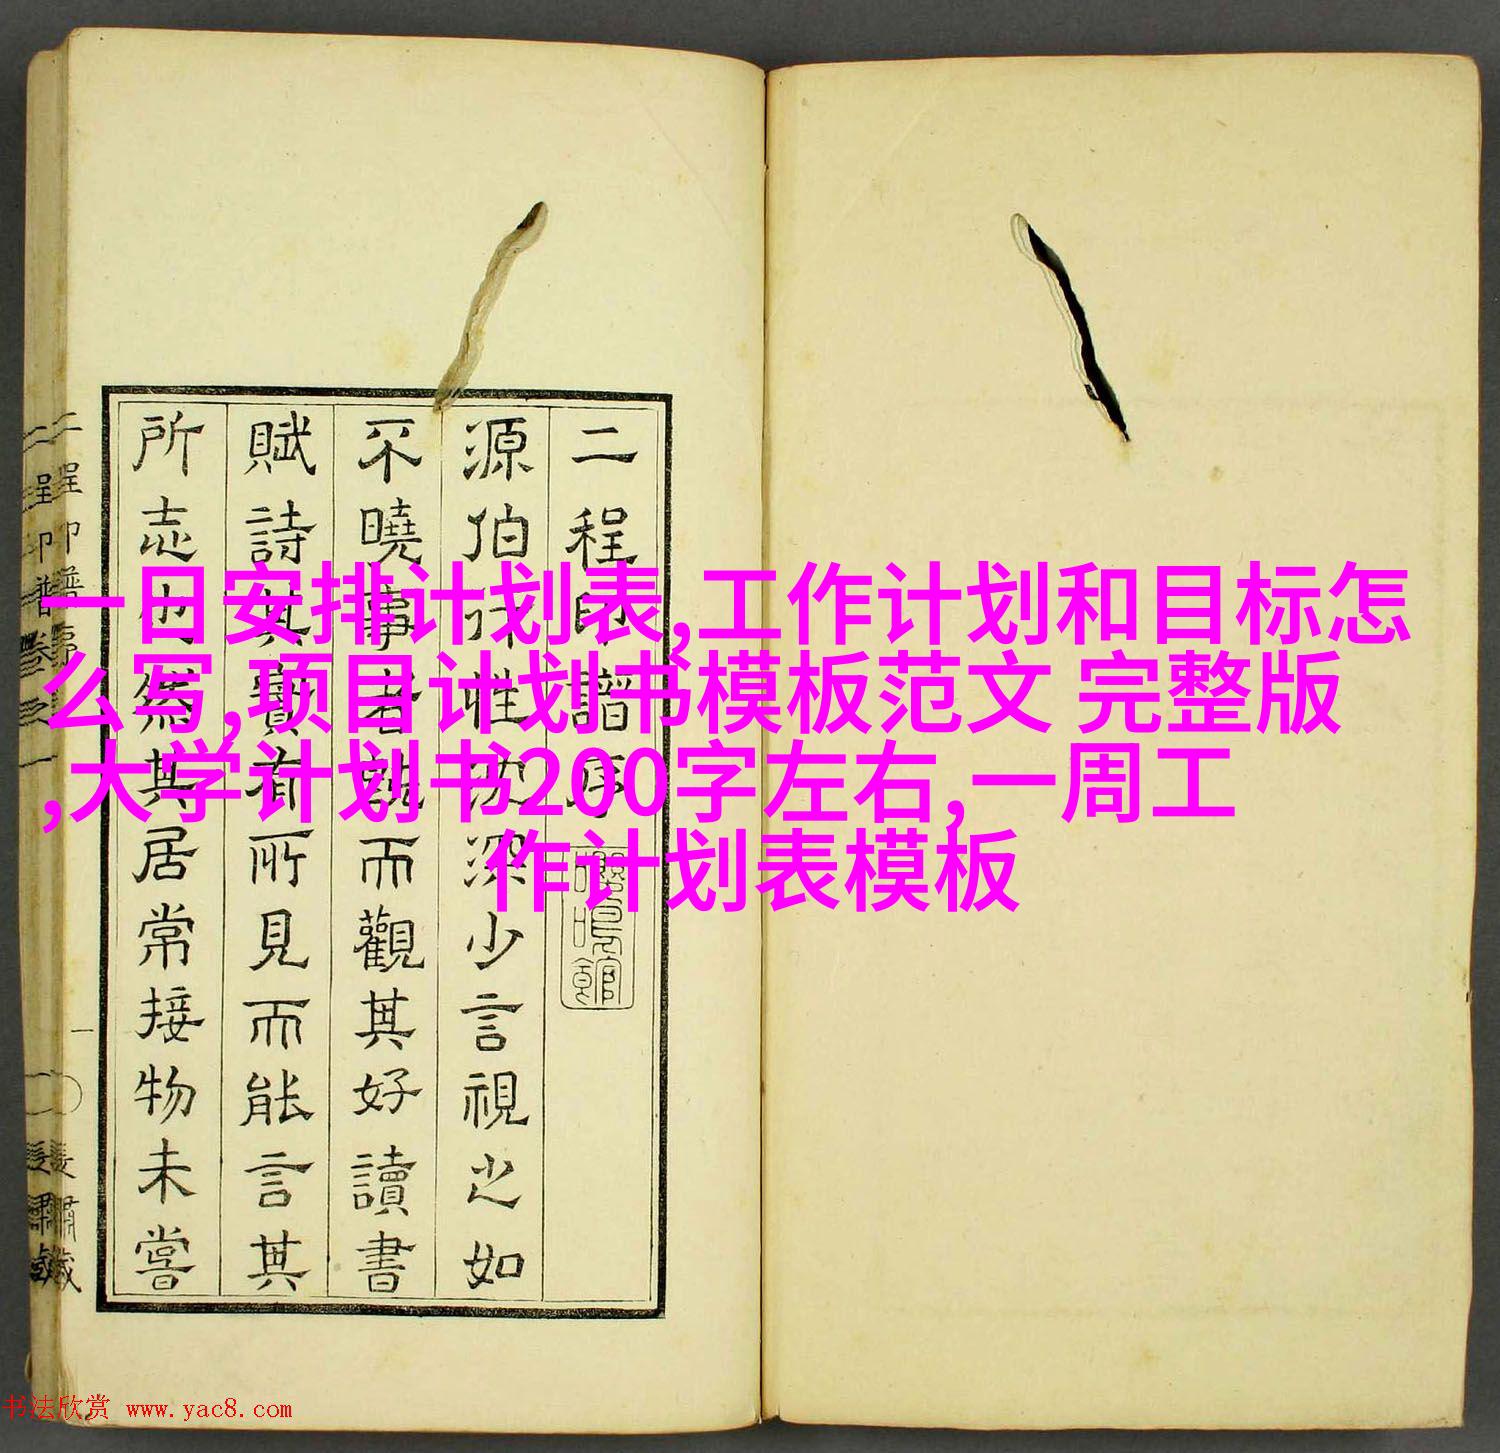 一日安排计划表,工作计划和目标怎
么写,项目计划书模板范文 完整版
,大学计划书200字左右,一周工
作计划表模板
二程印譜序
源伯孫性沈深少言視之如
不曉事者就而觀其好讀書
賦詩其實有所見而能言其
所志也然其居常接物未嘗
书法欣赏 www.yac8.com